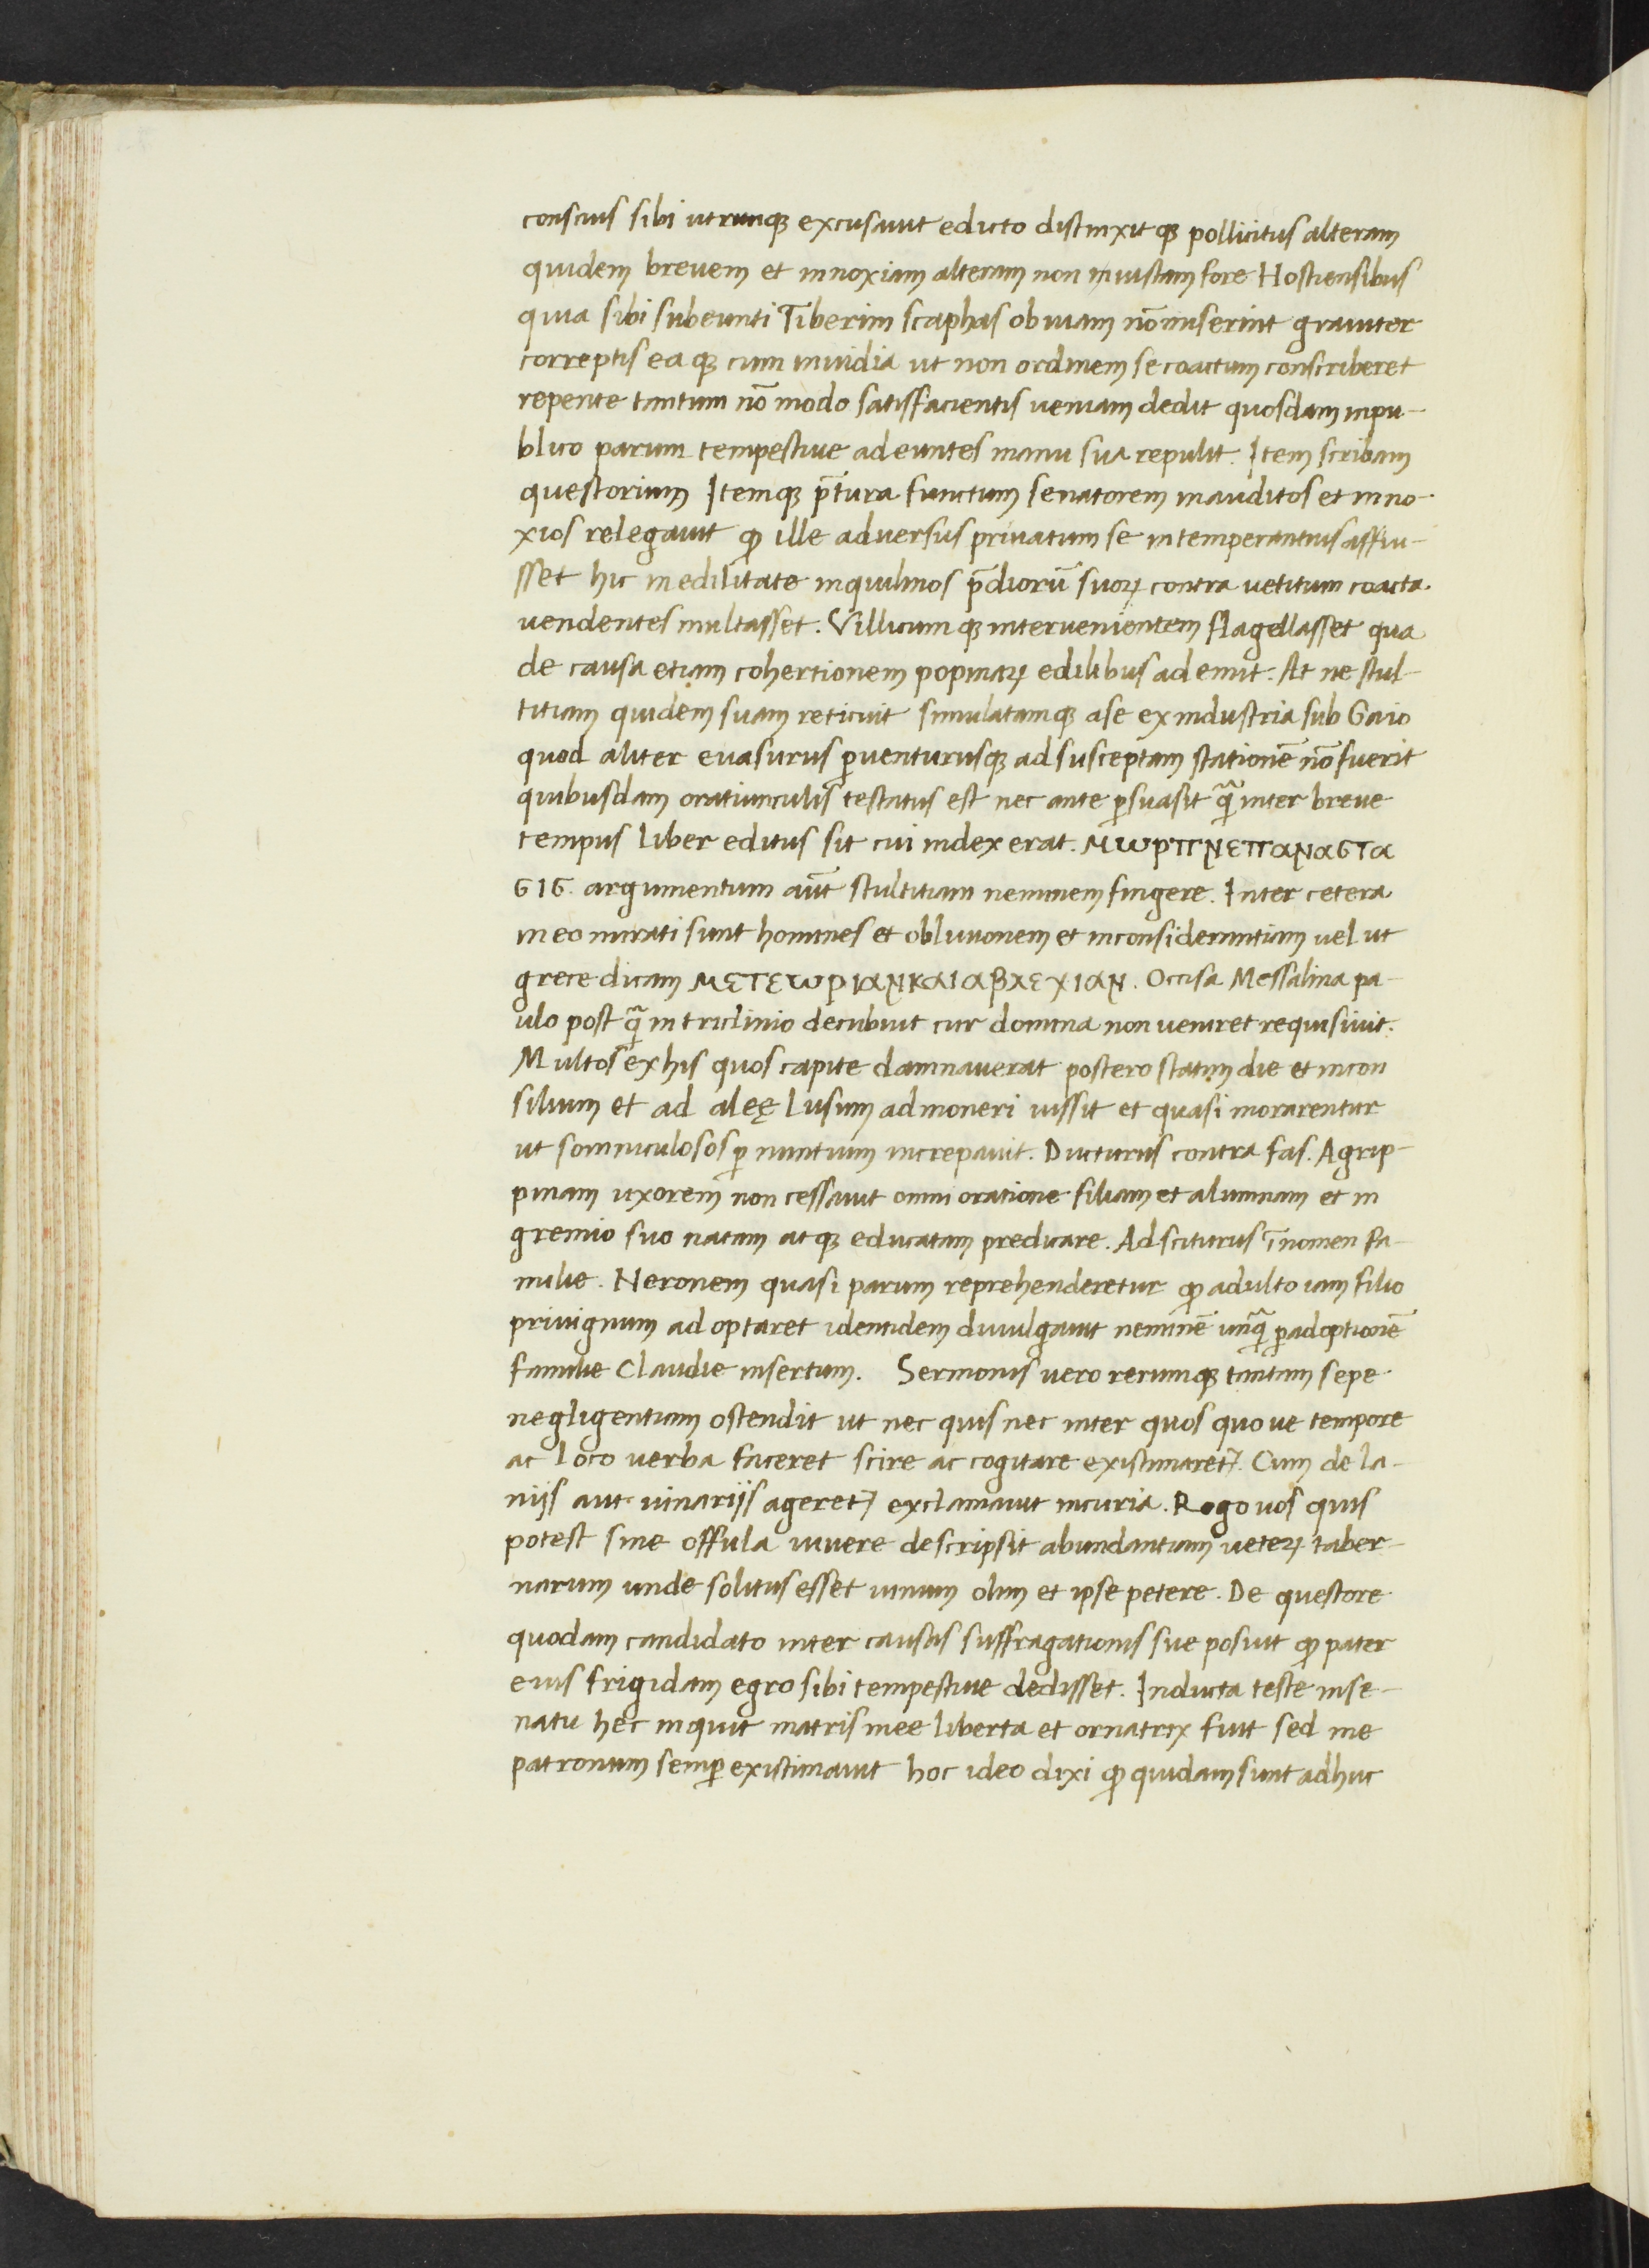 conscius sibi utrunqꝫ excusauit edicto distinxitqꝫ pollicitus alteram
quidem breuem et innoxiam alteram non iniustam fore Hostiensibus
quia sibi subeunti Tiberim scaphas obuiam nō miserint grauiter
correptis eaqꝫ cum inuidia ut non ordinem se coactum conscriberet
repente tantum nō modo satisfacientis ueniam dedit quosdam inpu-
blico parum tempestiue adeuntes manu sua repulit. Item scribam
questorium Itemqꝫ p̄tura functum senatorem inauditos et inno-
xios relegauit ꝙ ille aduersus priuatum se intemperantius affui-
sset hic in edilitate inquilinos p̄diorū suoꝝ contra uetitum cocta
uendentes multasset. Villicumqꝫ interuenientem flagellasset qua
de causa etiam cohertionem popinaꝝ edilibus ademit. At ne stul-
titiam quidem suam reticuit simulatamqꝫ ase ex industria sub Gaio
quod aliter euasurus ꝑuenturusqꝫ ad susceptam stationē nō fuerit
quibusdam oratiunculis testatus est nec ante ꝑsuasit q̄ inter breue
tempus liber editus sit cui index erat. ΜωΡΠΝΕΠαΝαϹΤα
ϹΙϹ. argumentum aūt stultitiam neminem fingere. Inter cetera
in eo mirati sunt homines et obliuionem et inconsiderantiam uel ut
grece dicam ΜΕΤΕωΡΙαΝΚΑΙαΒΛΕΧΙαΝ. Occisa Messalina pa-
ulo post q̄ in triclinio decubuit cur domina non ueniret requisiuit.
Multos ex his quos capite damnauerat postero statim die et incon
silium et ad aleę lusum admoneri iussit et quasi morarentur
ut somniculosos ꝑ nuntium increpauit. Ducturus contra fas. Agrip-
pinam uxorem non cessauit omni oratione filiam et alumnam et in
gremio suo natam atqꝫ educatam predicare. Adsciturus ī nomen fa-
milie. Neronem quasi parum reprehenderetur ꝙ adulto iam filio
priuignum adoptaret identidem diuulgauit neminē unq̄ ꝑ adoptionē
familie Claudie insertum. Sermonis uero rerumqꝫ tantam sepe
negligentiam ostendit ut nec quis nec inter quos quoue tempore
ac loco uerba faceret scire ac cogitare existimaret᷑. Cum de la-
niis aut uinariis ageret᷑ exclamauit incuria. Rogo uos quis
potest sine offula uiuere descripsit abundantiam ueteꝝ taber-
narum unde solitus esset uinum olim et ipse petere. De questore
quodam candidato inter causas suffragationis sue posuit ꝙ pater
eius frigidam egro sibi tempestiue dedisset. Inducta teste inse-
natu hec inquit matris mee liberta et ornatrix fuit sed me
patronum semꝑ existimauit hoc ideo dixi ꝙ quidam sunt adhuc